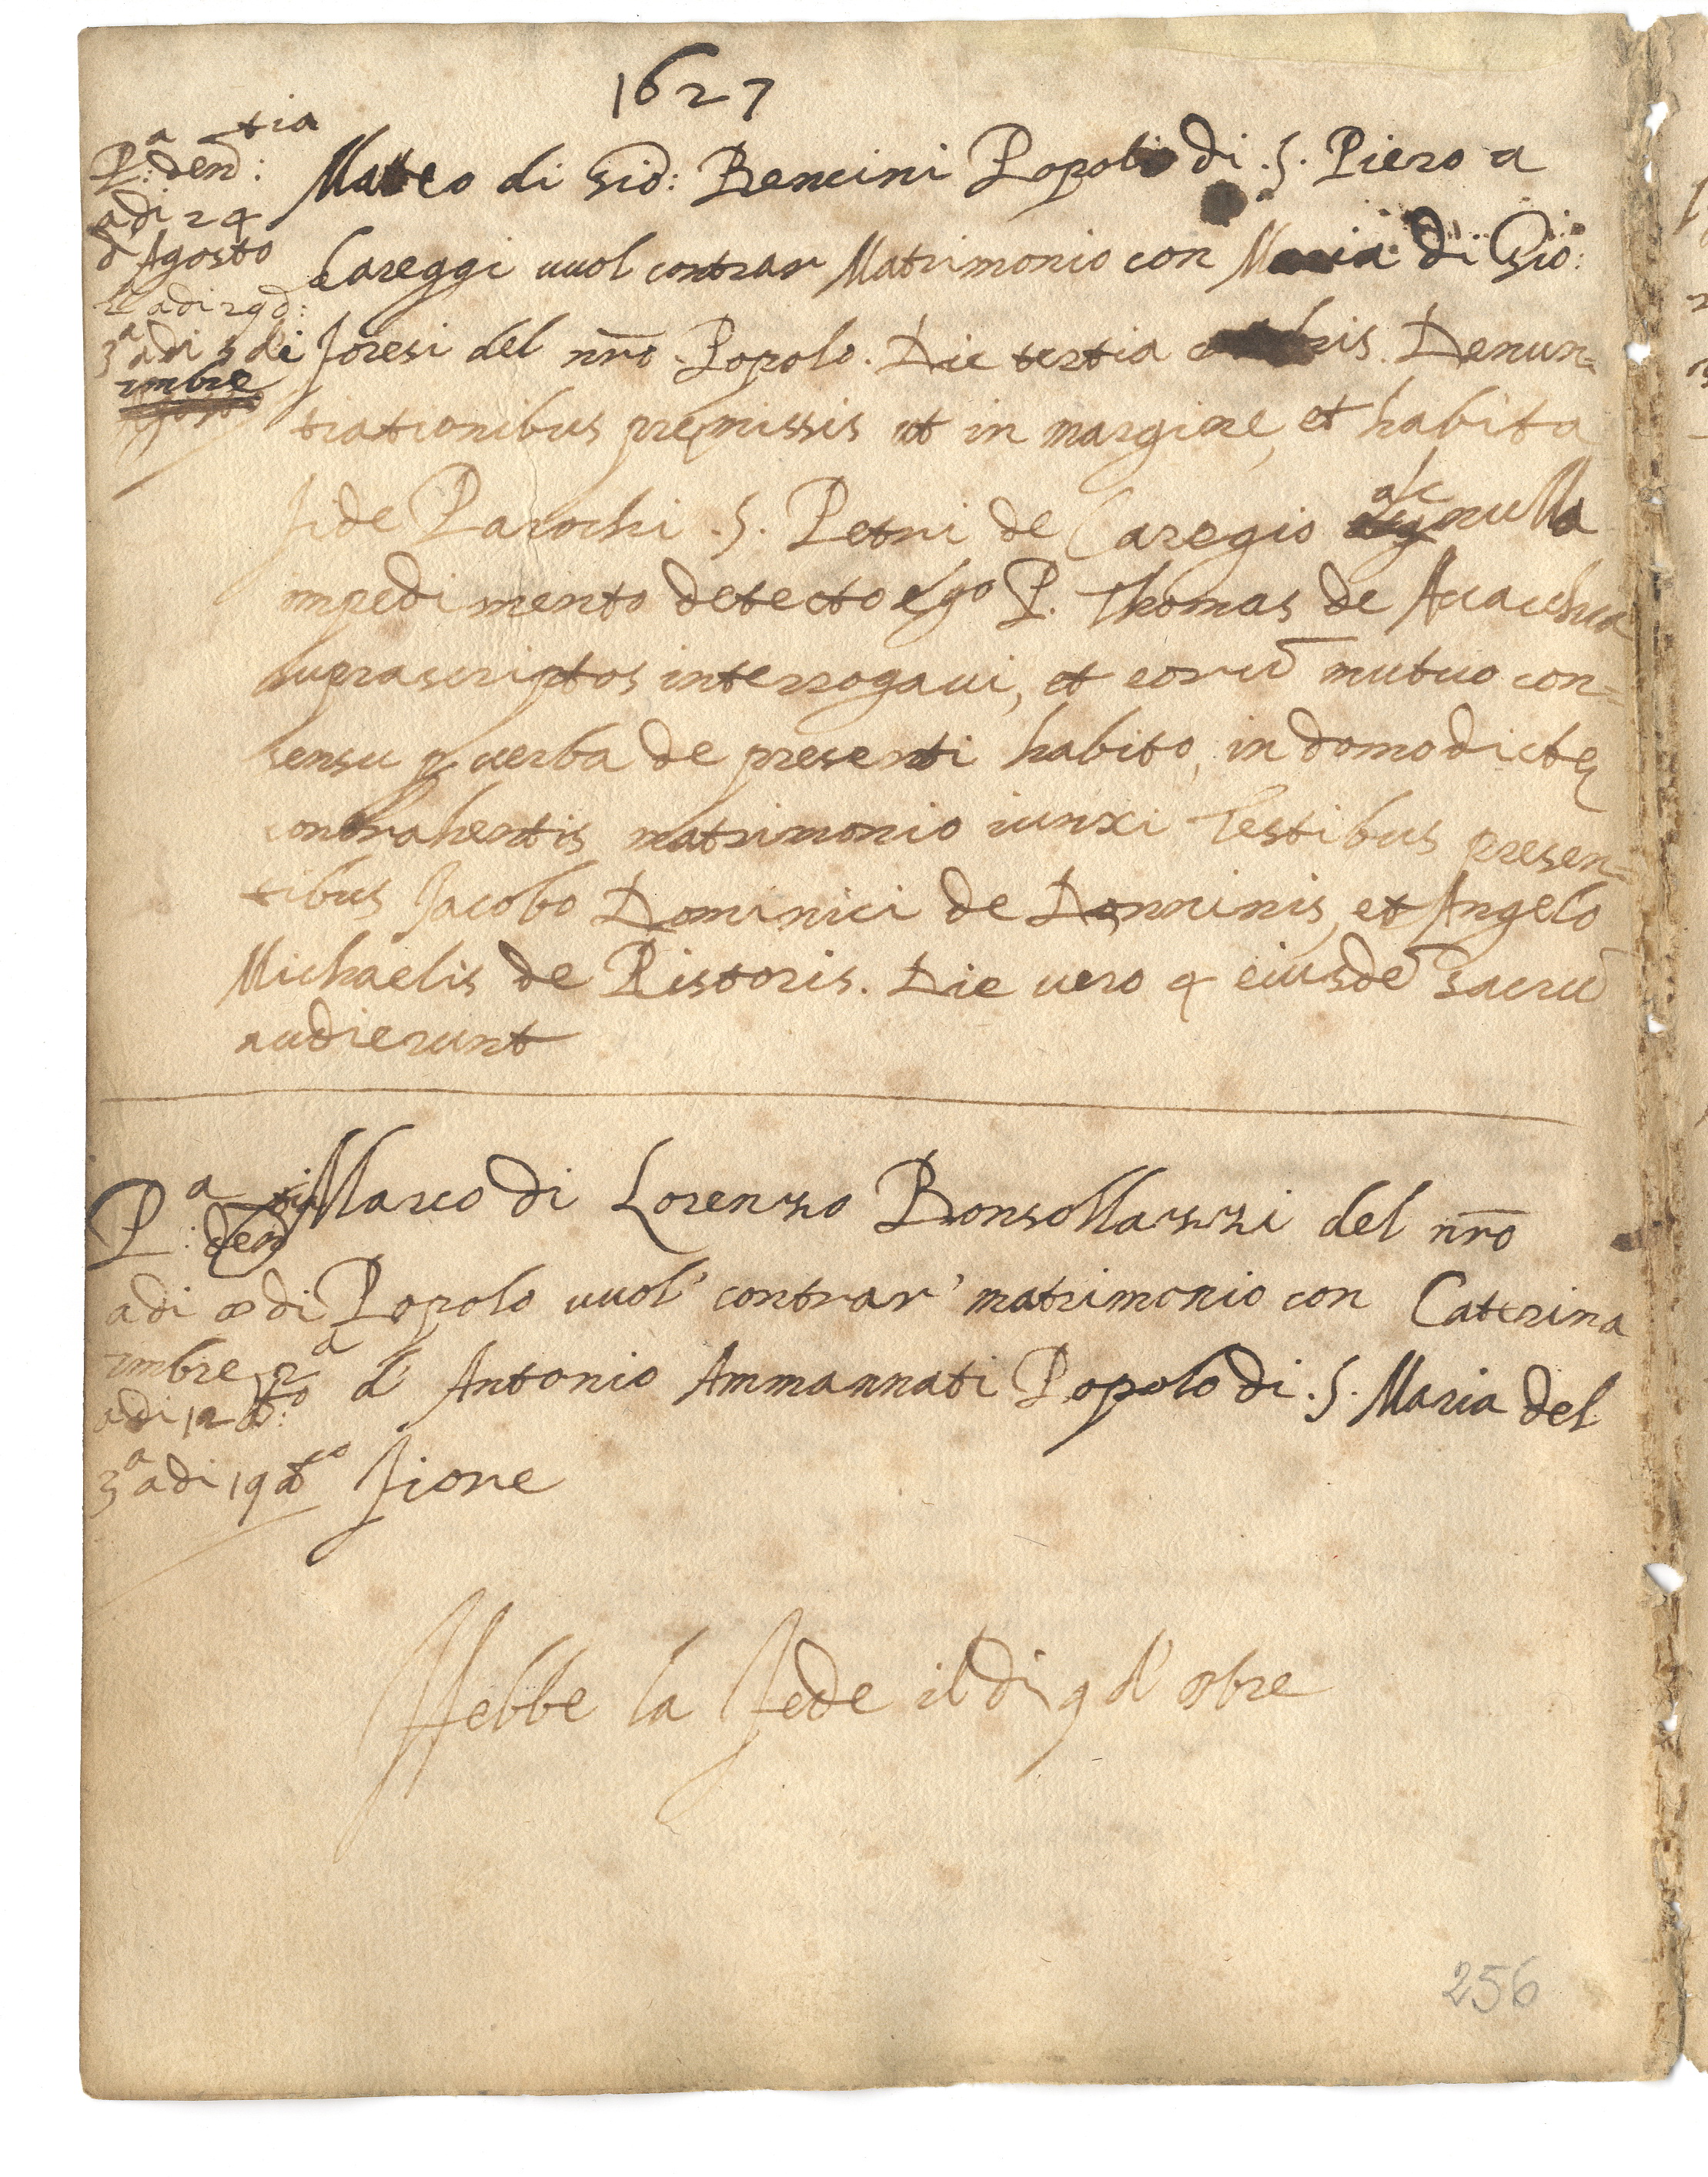 1627
P.ª den:tia
adi 24
d'Agosto
2ª adi 29 d:
3ª adi 5 di
7mbre
Matteo di Gio: Bencini Popolo di .S. Piero a
Careggi vuol contrar Matrimonio con Maria di Gio:
foresi del nr̃o Popolo. Die tertia Denun=
tiationibus premissis ut in margine, et habita
fide Parochi .S. Petri de Caregio nullo
impedimento detecto Ego P. Thomas de
suprascriptos interrogaui, et eorũ mutuo con=
sensu p uerba de presenti habito, in domo dictę
contrahentis matrimonio iunxi Testibus presen=
tibus Jacobo Dominici de Donninis, et Angelo
Michaelis de Ristoris. Die uero 4 eiusdẽ Sacrũ
audierunt
P.ª den
adi di
7mbre 2ª
adi 12 d:to
3ª adi 19 d:to
Marco di Lorenzo Bonsollazzi del nr̃o
Popolo vuol' contrar' matrimonio con Catterina
d' Antonio Ammannati Popolo di .S. Maria del
fiore
Hebbe la fede il di 9 d' 8bre
256